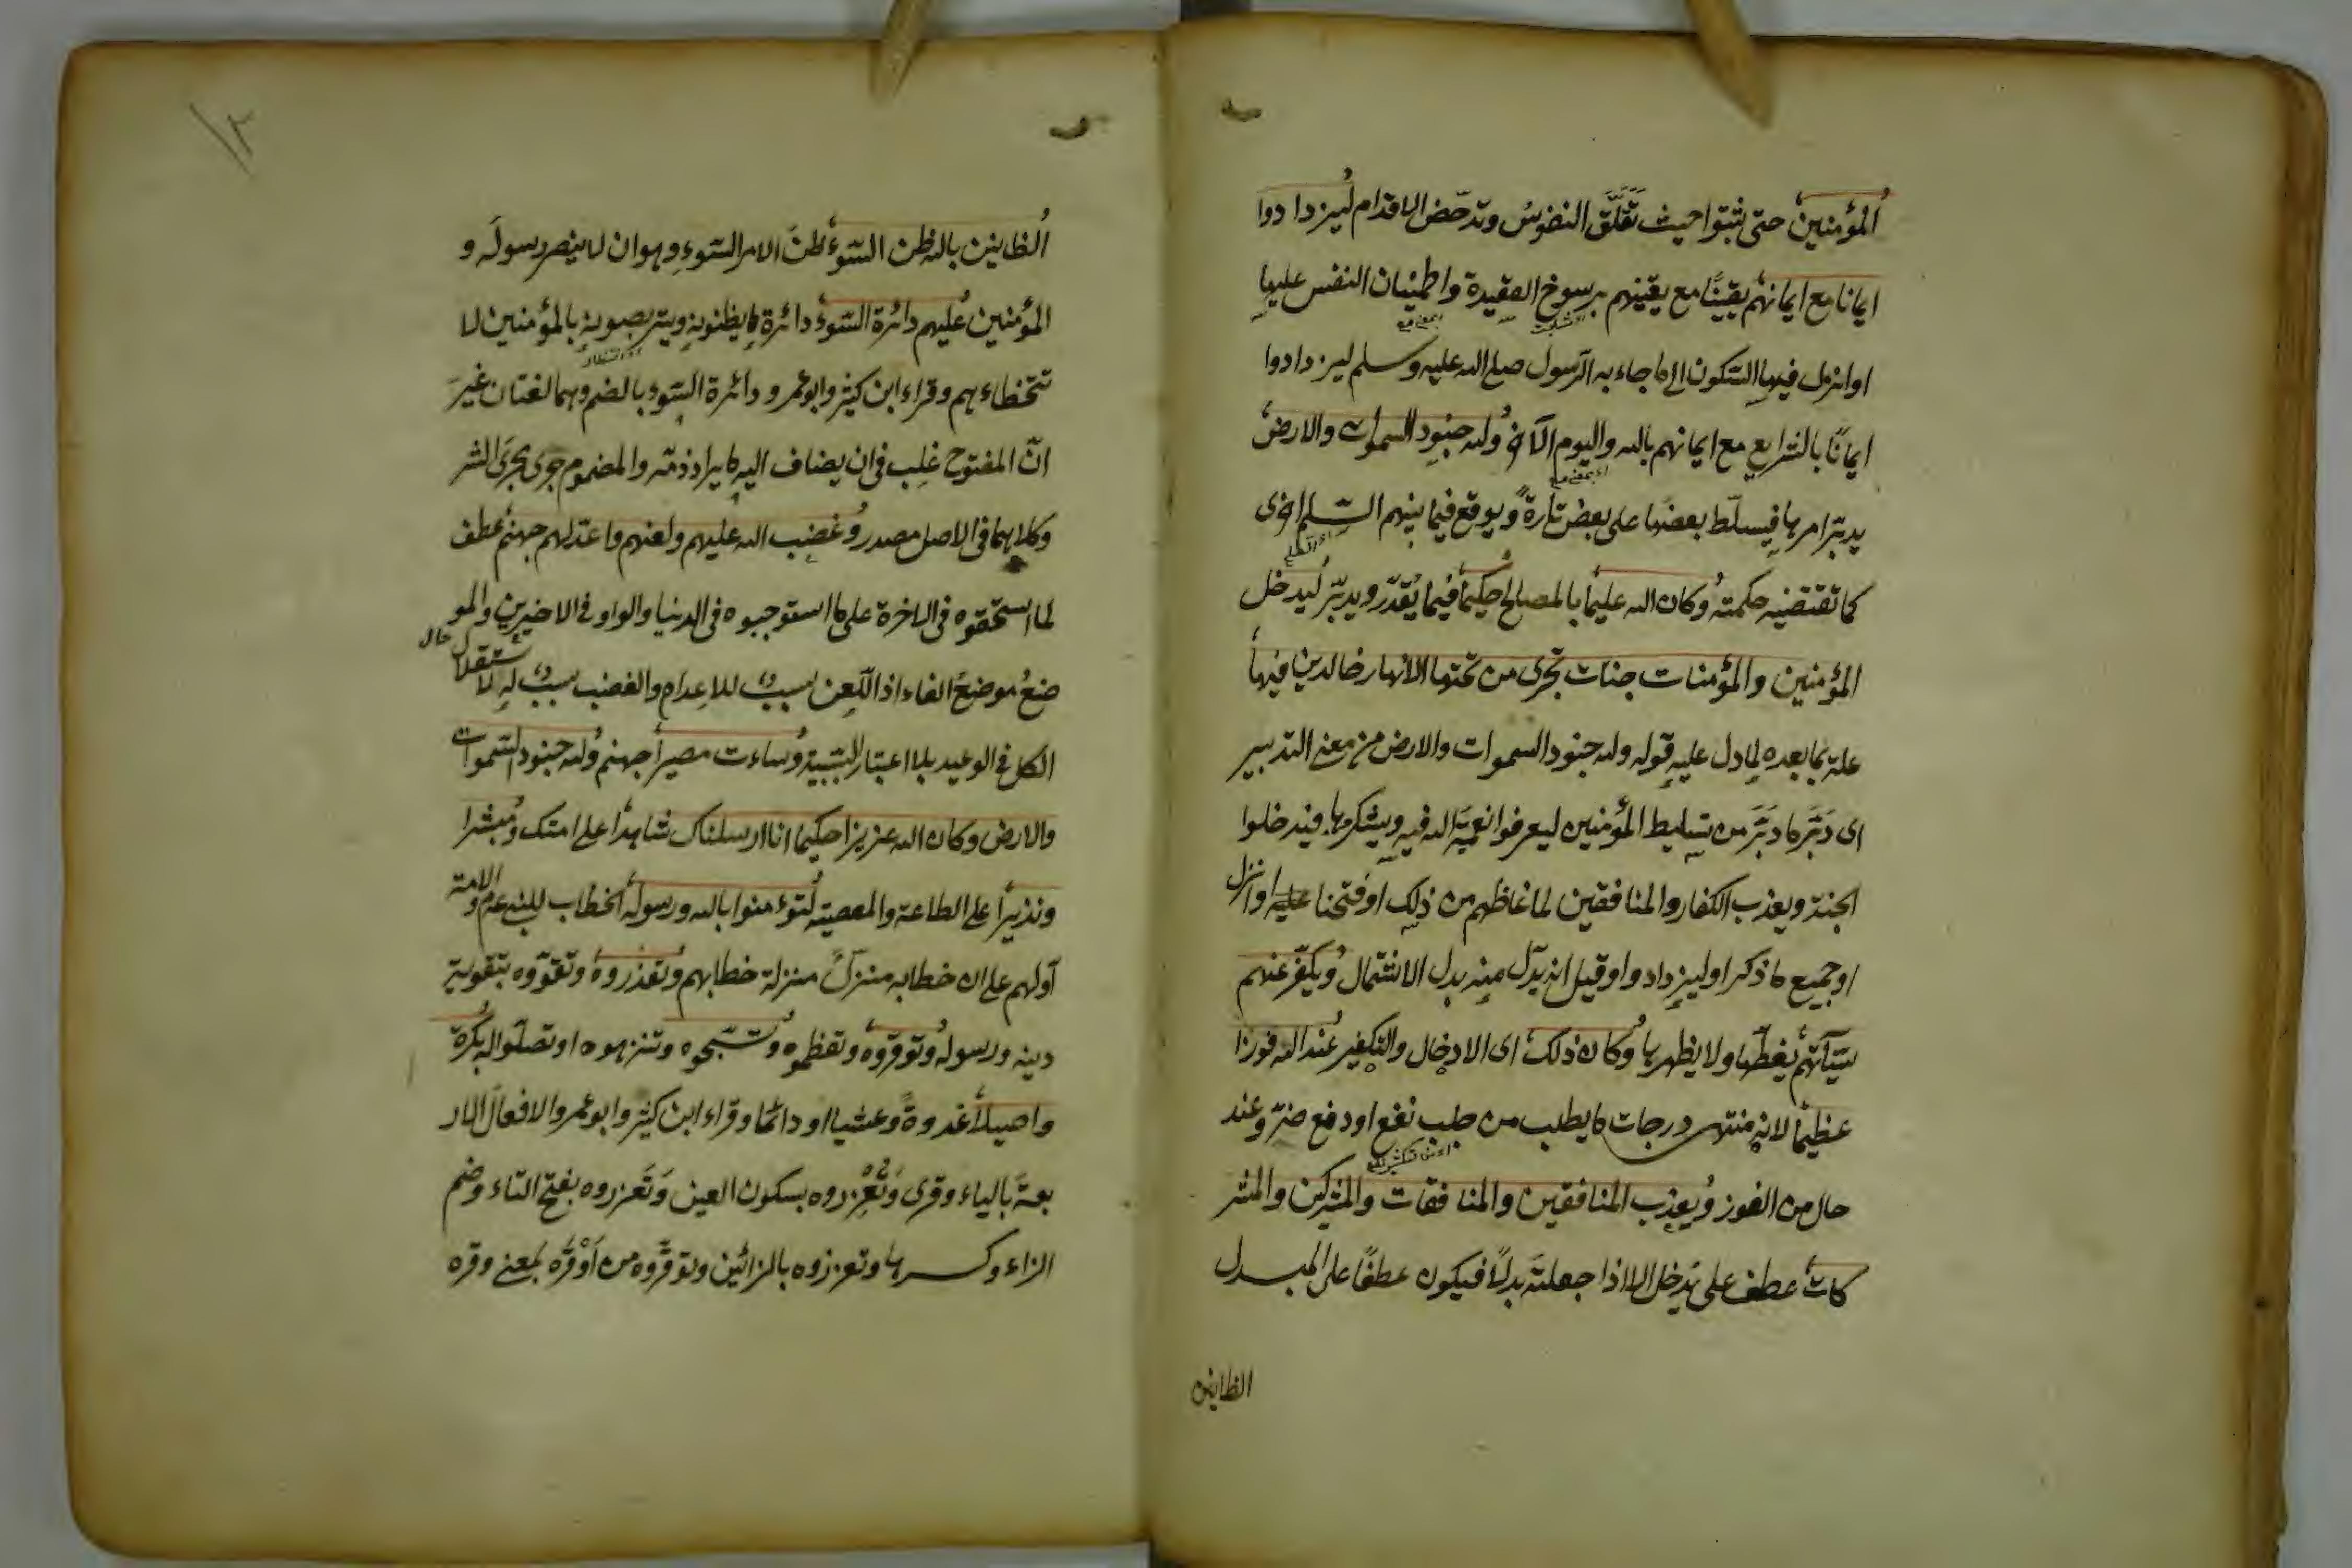 المؤمنين حتى ثبتوا حيث تقلّق النفوس وتدحّض الاقدام ليزدادوا
ايمانا مع ايمانهم يقينًا مع يقينهم برسوخ العقيدة واطمينان النفس عليها
او انزل فيها السكون الى ما جاء به الرسول صلى الله عليه وسلم ليزدادوا
ايمانًا بالشرايع مع ايمانهم بالله واليوم الآخر ولله جنود السموات والارض
يدبّر امرها فيسلّط بعضها على بعض تارةً ويوقع فيما بينهم السلم اخرى
كما تقتضيه حكمته وكان الله عليما بالمصالح حكيما فيما يُقدّر ويدبّر ليدخل
المؤمنين والمؤمنات جنات تجرى من تحتها الانهار خالدين فيها
علة بما بعده لما دل عليه قوله ولله جنود السموات والارض من معنى التدبير
اى دَبّر ما دبّر من تسليط المؤمنين ليعرفوا نعمة الله فيه ويشكرها فيدخلوا
الجنة ويعذب الكفار والمنافقين لما غاظهم من ذلك او فتحنا عليه او انزل
او جميع ما ذكر او ليزدادوا وقيل انه بدل منه بدل الاشتمال ويكفّر عنهم
سيّآتهم يغطّيها ولا يظهرها وكان ذلك اى الادخال والتكفير عند الله فوزا
عظيما لانه منتهى درجات ما يطلب من جلب نفع او دفع ضرّ وعند
حال من الفوز ويعذب المنافقين والمنافقات والمشركين والمشر
كات عطف على يدخل الا اذا جعلته بدلًا فيكون عطفًا على المبدل
الظانين
١٢
الظانين بالله ظن السّوء ظنّ الامر السّوء وهو ان لا ينصر رسوله و
المؤمنين عليهم دائرة السّوء دائرة ما يظنونه ويتربصونه بالمؤمنين لا
تتخطاءهم وقراء ابن كثير وابو عمرو دائرة السّوء بالضم وهما لغتان غيرَ
انّ المفتوح غلب فى ان يضاف اليه ما يراد ذمّه والمضموم جرى مجرى الشر
وكلاهما فى الاصل مصدر وغضب الله عليهم ولعنهم واعدّ لهم جهنم عطف
لما استحقوه فى الاخرة على ما استوجبوه فى الدنيا والواو فى الاخيرين والمو
ضعُ موضعُ الفاء اذ اللعن سببٌ للاعداد والغضب سببٌ له لاستقلال
الكل فى الوعيد بلا اعتبار السّببيّة وساءت مصيرا جهنم ولله جنود السّموات
والارض وكان الله عزيزا حكيما انا ارسلناك شاهدا على امتك ومبشرا
ونذيرا على الطاعة والمعصية لتؤمنوا بالله ورسوله الخطاب للنبى عم والامة
اولهم على ان خطابه منزّلٌ منزلة خطابهم وتعزروه وتقوّوه بتقوية
دينه ورسوله وتوقّروه وتعظموه وتسبّحوه وتنزهوه او تصلّوا له بكرة
واصيلا غدوةً وعشيا او دائما وقراء ابن كثير وابو عمرو الافعال الار
بعة بالياء وقرى وتُعْزِروه بسكون العين وتَعزروه بفتح التاء وضم
الزاء وكسرها وتعززوه بالزائين وتوقّروه من اَوْقَرَه بمعنى وقره